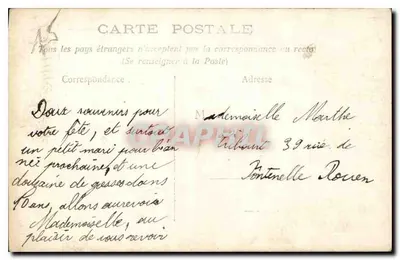 CARTE POSTALE
Tous les pays étrangers n'acceptent pas la correspondance au recto
(Se renseigner à la Poste)
Correspondance
Adresse
Doux souvenirs pour
votre fête, et surtout
un petit mari pour l'an
née prochaine, et une
douzaine de gosses dans
10 ans, allons au revoir
Mademoiselle, au
plaisir de vous revoir
Mademoiselle Marthe
39 rue de
Fontenelle Rouen